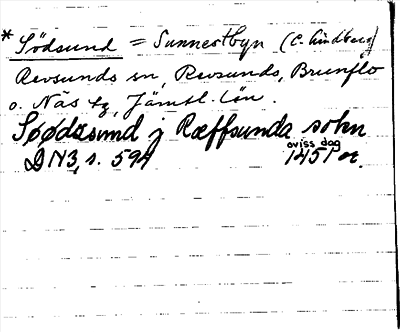 * Södsund = Sunnestbyn (C. Lindberg)
Revsunds sn, Revsunds, Brunflo
o. Näs tg, Jämtl. län.
Søødasund j Ræffsunda sokn
DN3, s. 594 oviss dag 1451 or.